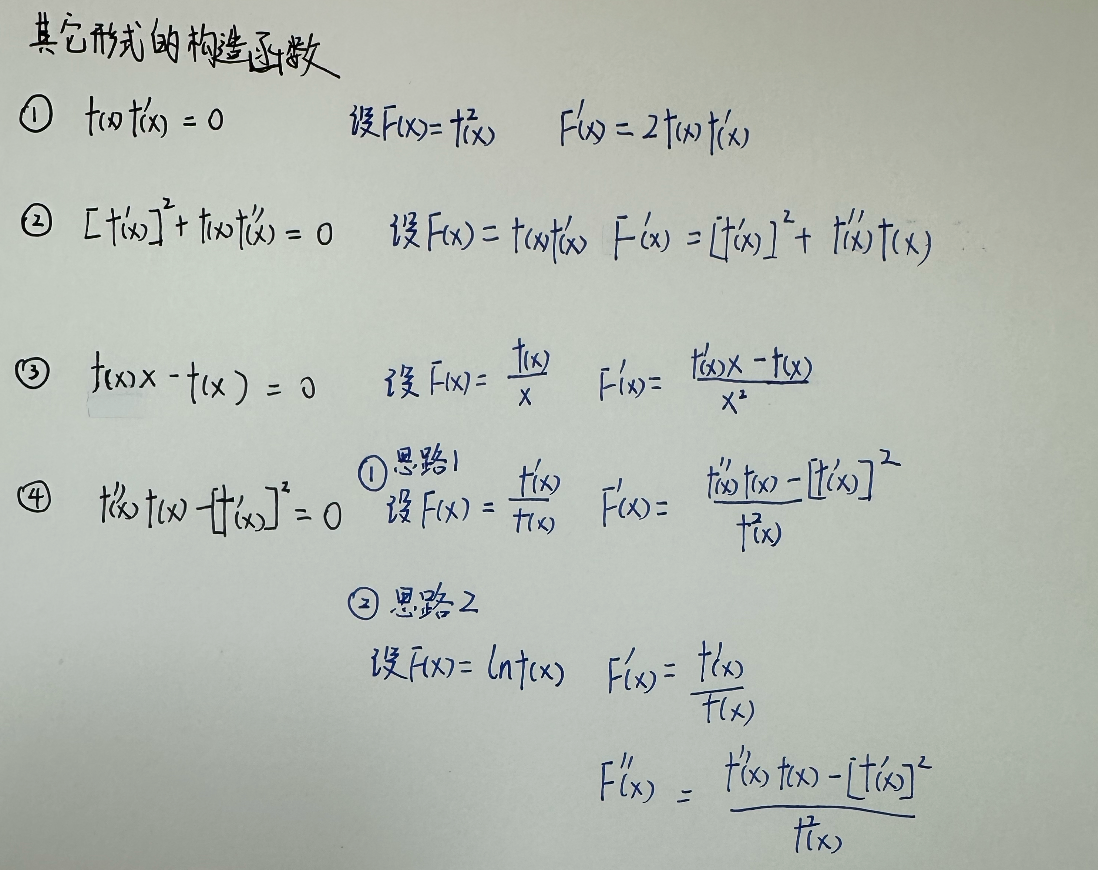 其它形式的构造函数
① f(x)f'(x) = 0 设F(x)= f²(x) F'(x) = 2f(x)f'(x)
② [f'(x)]² + f(x)f''(x) = 0 设F(x) = f(x)f'(x) F'(x) = [f'(x)]² + f''(x)f(x)
③ f(x)x - f(x) = 0 设F(x) = f(x)/x F'(x) = f'(x)x - f(x)/x²
④ f''(x)f(x) - [f'(x)]² = 0 ① 思路1
设F(x) = f'(x)/f(x) F'(x) = f''(x)f(x) - [f'(x)]²/f²(x)
② 思路2
设F(x) = lnf(x) F'(x) = f'(x)/f(x)
F''(x) = f''(x)f(x) - [f'(x)]²/f²(x)